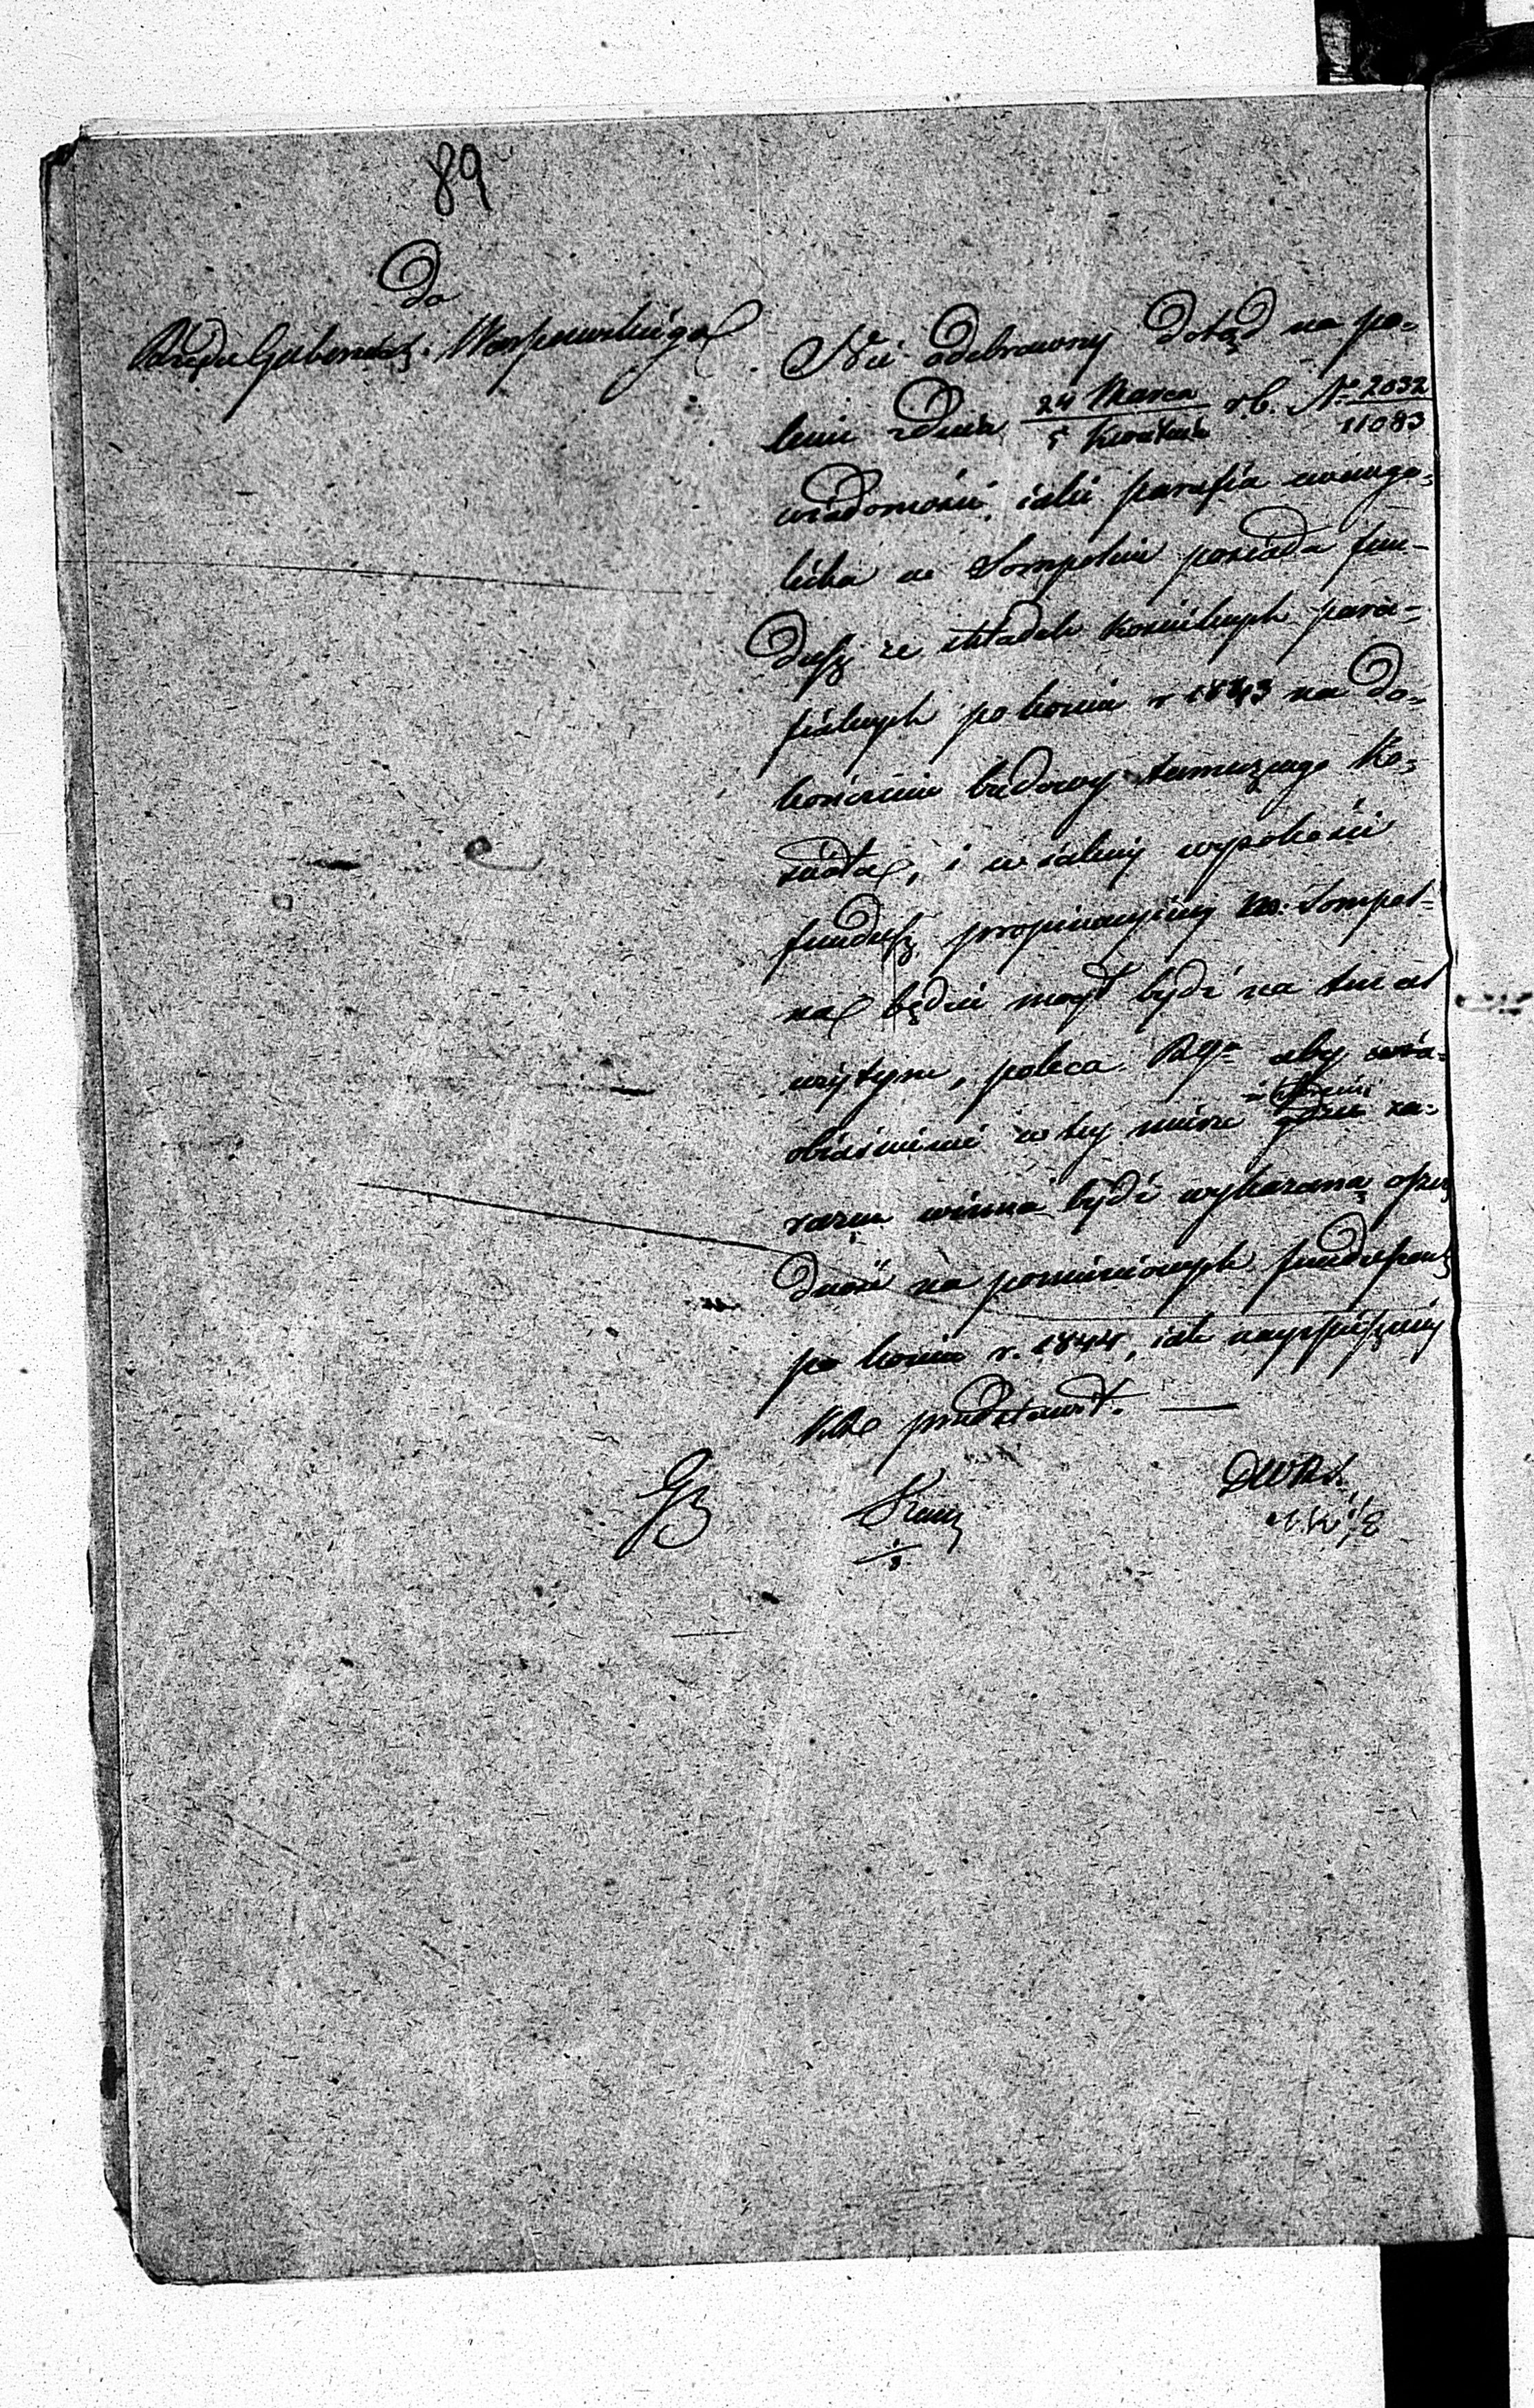 89
Do
Rządu Gubernial. Warszawskiego
Nie odebrawszy dotąd na po-
lecenie z dnia 24 Marca / 5 Kwietnia r b. No 2032 / 11083
wiadomości, iaki parafia ewange-
licka w Sompolnie posiada fun-
dusz ze składek kościelnych para-
fialnych po koniec r 1843 na do-
kończenie budowy tamecznego Ko-
ścioła, i w iakiej wysokości
fundusz propinacyiny m. Sompol-
na będzie mógł bydź na ten cel
użytym, poleca RGu aby
obiaśnienie w tey mierze za-
razem winna bydź wykazaną
na pomienionych
po koniec r. 1844, iak nayspieszniey
KRo przedstawił. —
GB
DWRel.